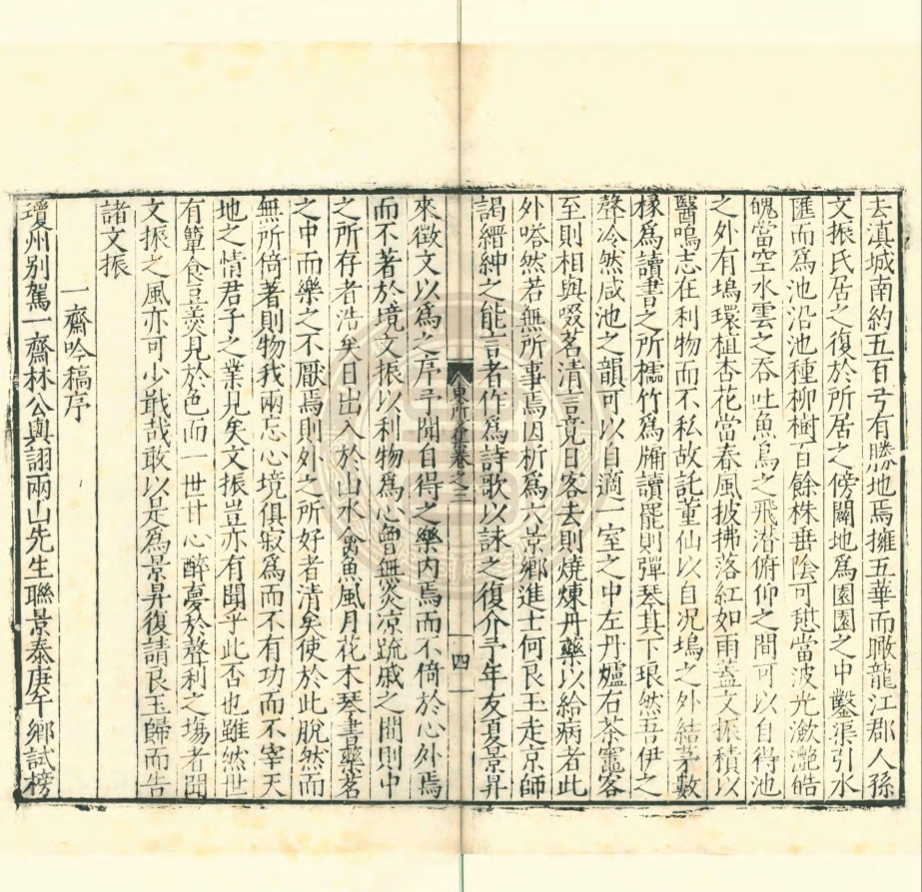 去滇城南約五百弓有勝地焉擁五華而瞰龍江郡人孫
文振氏居之復於所居之傍闢地為園園之中鑿渠引水
匯而為池沿池種柳樹百餘株垂陰可憇當波光瀲灧皓
魄當空水雲之吞吐魚鳥之飛潛俯仰之間可以自得池
之外有塢環植杏花當春風披拂落紅如雨蓋文振積以
醫鳴志在利物而不私故託董仙以自况塢之外結茅數
椽為讀書之所檽竹為牖讀罷則彈琴其下琅然吾伊之
聲冷然咸池之韻可以自適一室之中左丹爐右茶竈客
至則相與啜茗清言竟日客去則燒煉丹藥以給病者此
外嗒然若無所事焉因析為六景鄉進士何良玉走京師
謁縉紳之能言者作為詩歌以詠之復介予年友夏景昇
東所文集卷之二
四
來徵文以為之序予聞自得之樂内焉而不倚於心外焉
而不著於境文振以利物為心曾無炎凉䟽戚之間則中
之所存者浩矣日出入於山水禽魚風月花木琴書藥茗
之中而樂之不厭焉則外之所好者清矣使於此脱然而
無所倚著則物我兩忘心境俱寂為而不有功而不宰天
地之情君子之業見矣文振豈亦有聞乎此否也雖然世
有簞食豆羮見於色而一世甘心醉夢於聲利之塲者聞
文振之風亦可少戢哉敢以是為景昇復請良玉歸而告
諸文振
一齋吟稿序
瓊州别駕一齋林公與詡兩山先生聯景泰庚午鄉試榜